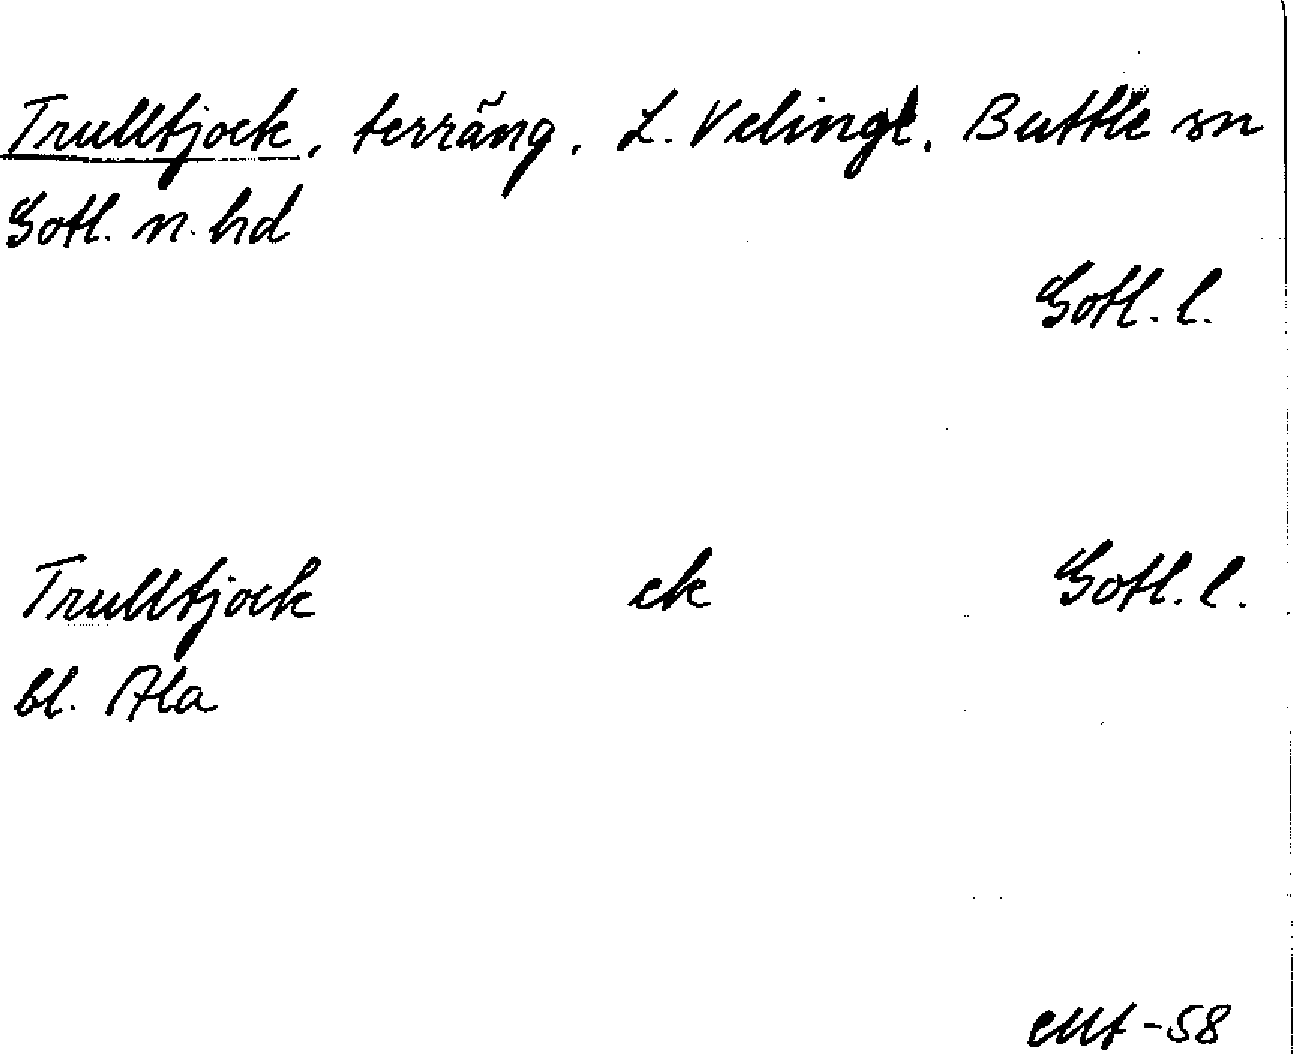 Trulltjock, terräng. L. Velinge, Buttle sn
Gotl. n. hd
Gotl. l.
Trulltjock ek Gotl. l.
bl. Ala
-58